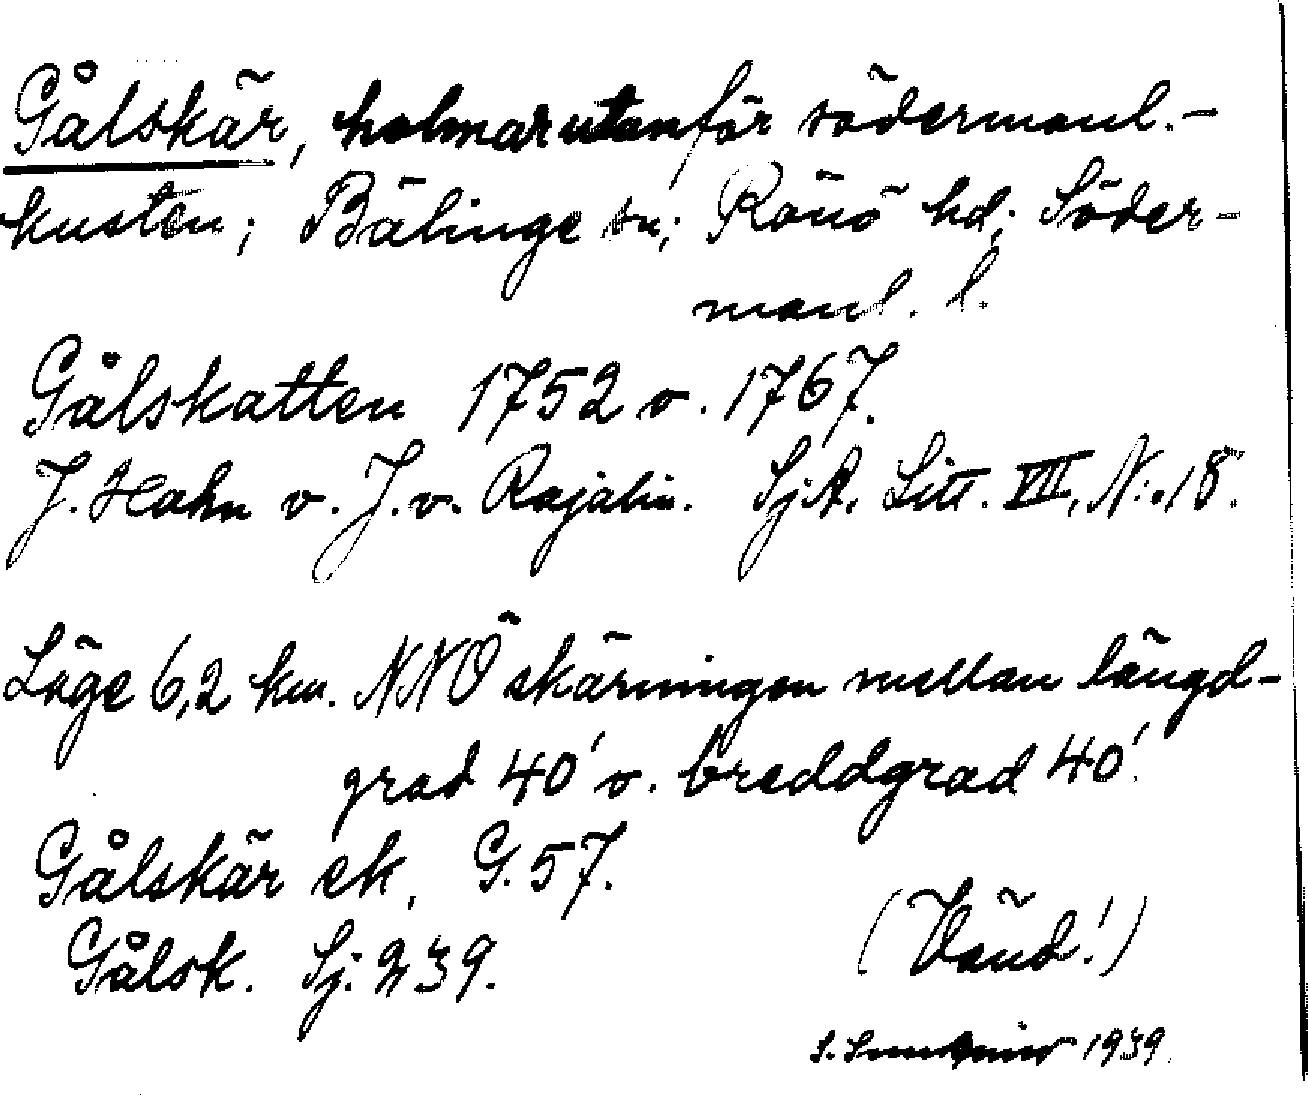 Gålskär, holmar utanför södermanl.-
kusten; Bälinge sn; Rönö hd; Söder-
manl. l.
Gålskatten 1752 o. 1767.
J. Hahn o. J. v. Rajalin. Sj.A. Litt. VII, N:o 18.
Läge 6,2 km. NNÖ skärningen mellan längd-
grad 40' o. breddgrad 40'.
Gålskär ek. G. 57.
Gålsk. Sj. 239.
(Vänd!)
S. 1939.